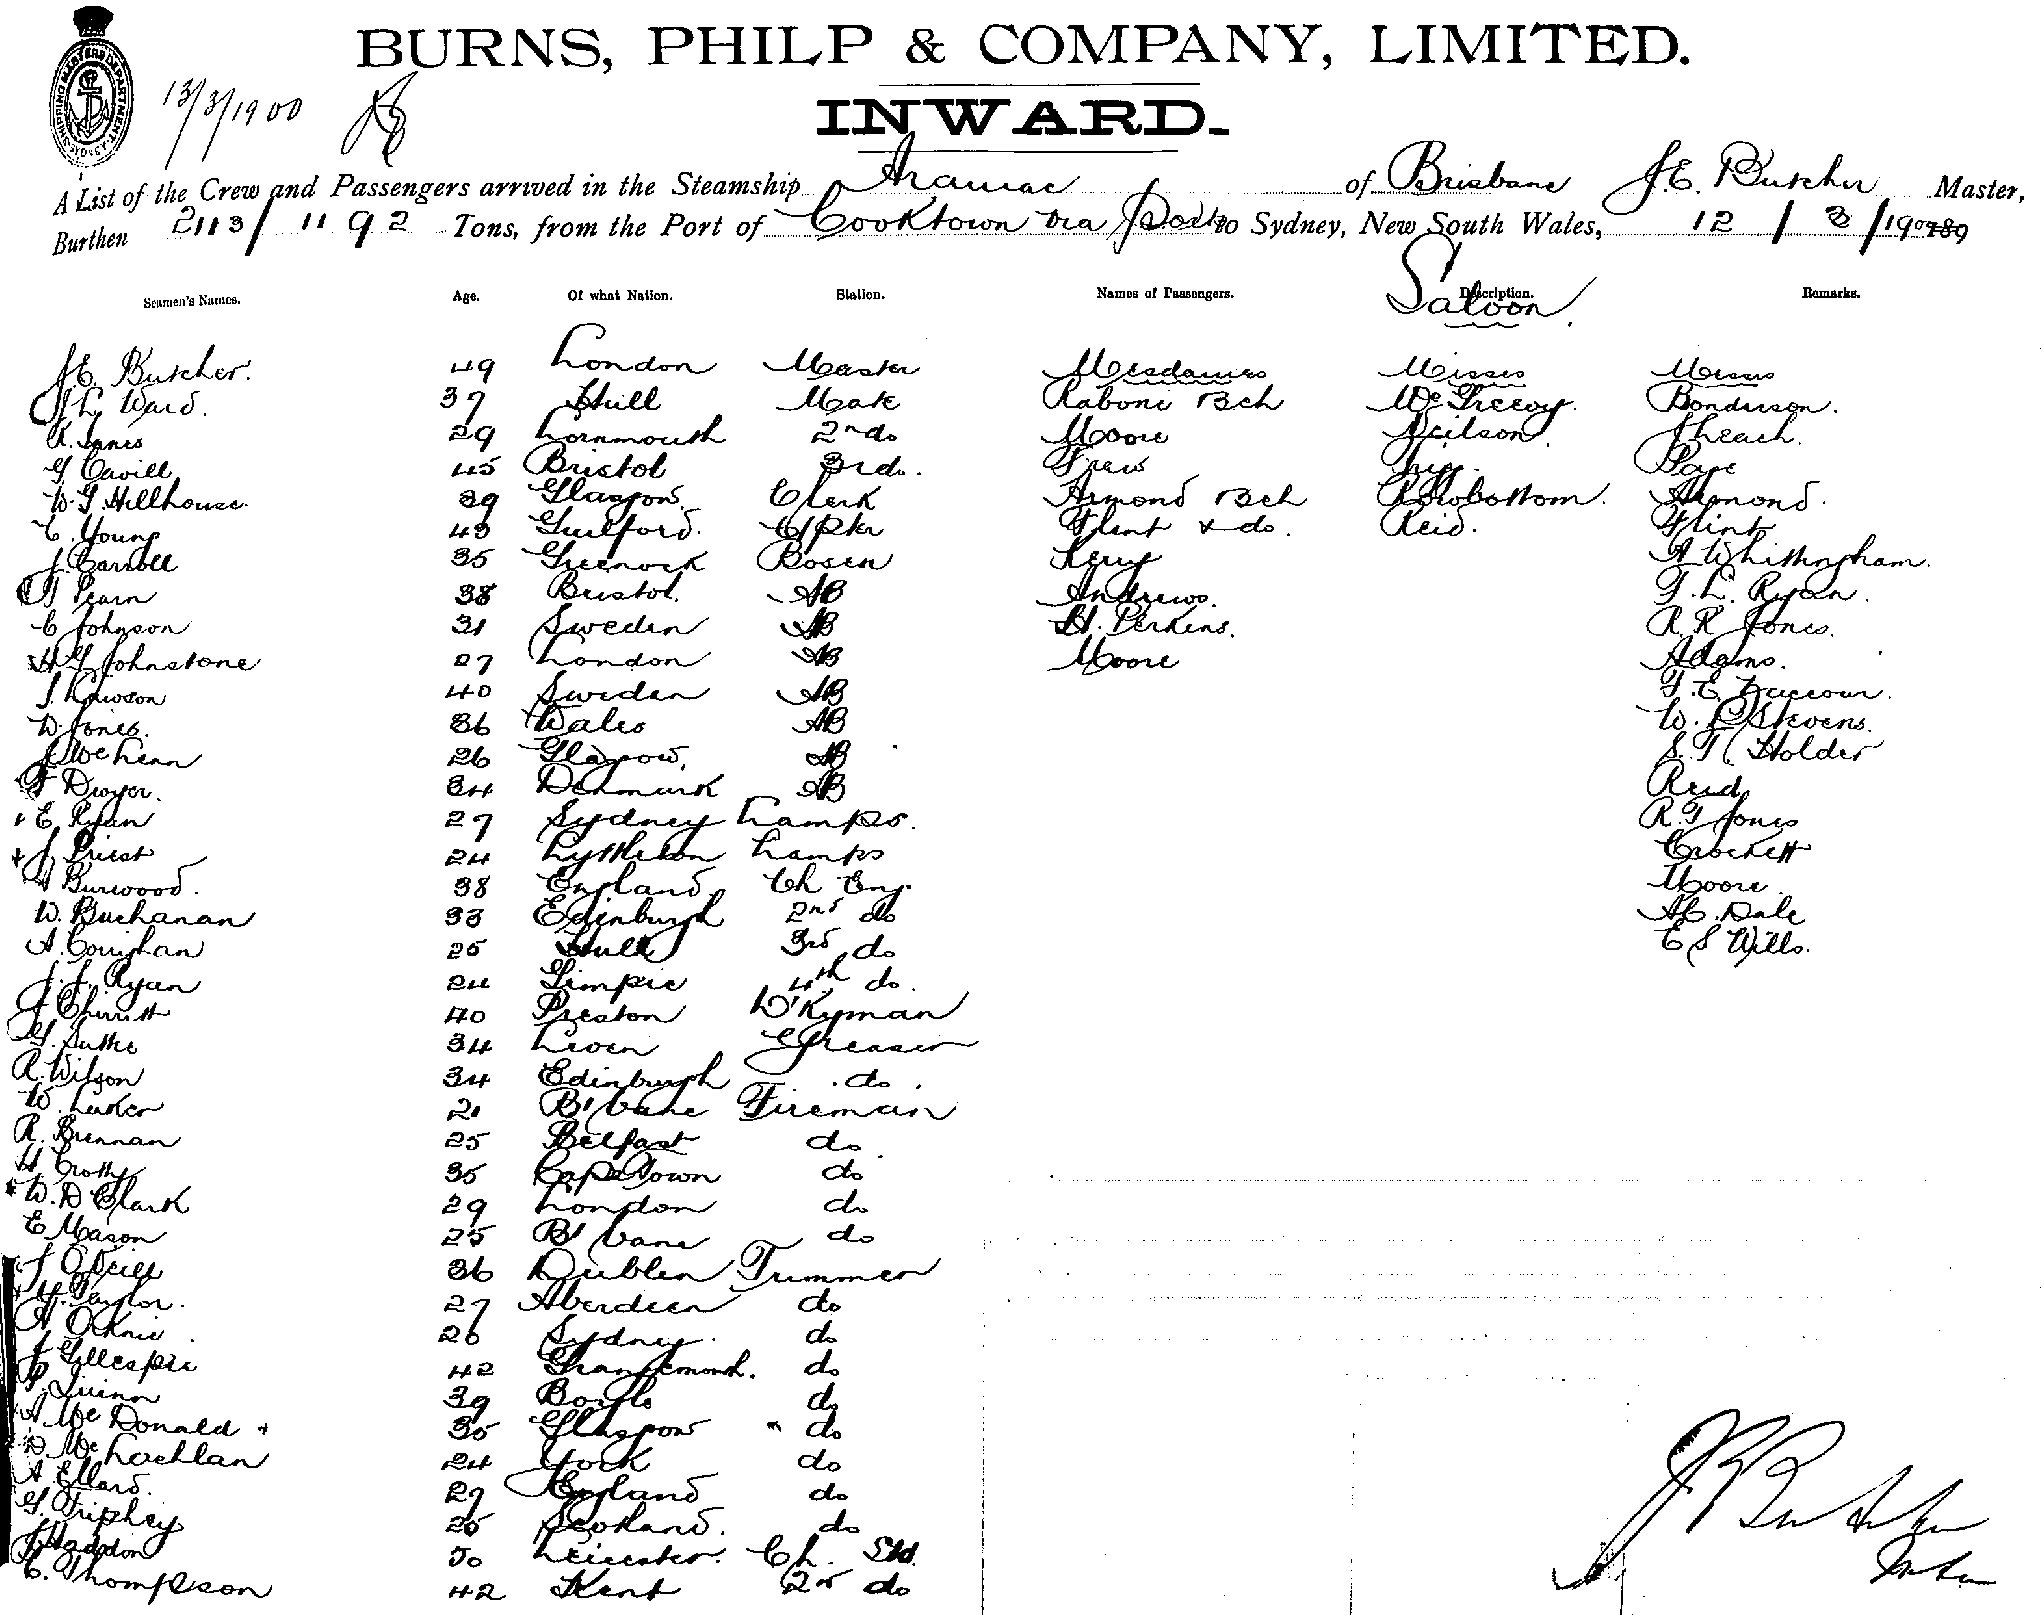 BURNS, PHILP & COMPANY, LIMITED.
13/3/1900
INWARD.
A List of the Crew and Passengers arrived in the Steamship Aramac of Brisbane J.E. Butcher Master,
Burthen 2113/1192 Tons, from the Port of Cooktown via Ports to Sydney, New South Wales, 12/3/1900
Seamen's Names. Age. Of what Nation. Station. Names of Passengers. Description. Remarks.
Saloon.
J.E. Butcher. 49 London Master Mesdames Misses Messrs
Ward. 37 Hull Mate Raboni & ch McGreevy.
R. 29 2nd do Moore Neilson. Leach.
G Cavill 45 Bristol 3rd do.
W.G. Hillhouse. 39 Glasgow. Clerk Armond & ch Rowbottom. Armond.
C. Young 43 Guilford. Flint & do. Reid. Flint
J. Carroll 35 Greenock Bosen Kerry A Whittingham.
Pearn 38 Bristol. AB Andrews. T. L. Ryan.
C Johnson 31 Sweden AB H. Perkins. R. R Jones.
Johnstone 27 London AB Moore Adams.
Lawson 40 Sweden AB
W Jones. 36 Wales AB Stevens.
26 Glasgow, AB S. T. Holder
Dwyer. 34 Denmark AB Reid
E Ryan 27 Sydney Lamps. R. T Jones
J Priest 24 Lyttleton Lamps Crockett
Burwood. 38 England Ch Eng. Moore.
W. Buchanan 33 Edinburgh 2nd do Dale
A. Coughan 25 Hull 3rd do E S Wills.
J. J. Ryan 24 Gimpie 4th do.
J 40 Preston D'Kyman
G. 34 Leven Greaser
R. Wilson 34 Edinburgh do.
W. 21 B'bane Fireman
R. Brennan 25 Belfast do
35 Cape Town do
W. D Clark 29 London do
E Mason 25 B'bane do
J O'Neill 36 Dublin Trimmer
H. Taylor. 27 Aberdeen do
26 Sydney. do
J Gillespie 42 do
Quinn 39 do
A McDonald 35 Glasgow " do
D McLachlan 24 York do
A. Ellard. 27 England do
G. Triphey 25 Scotland. do
J Haddon 50 Leicester. Ch. Std.
C. Thompson 42 Kent 2nd do
J E Butcher